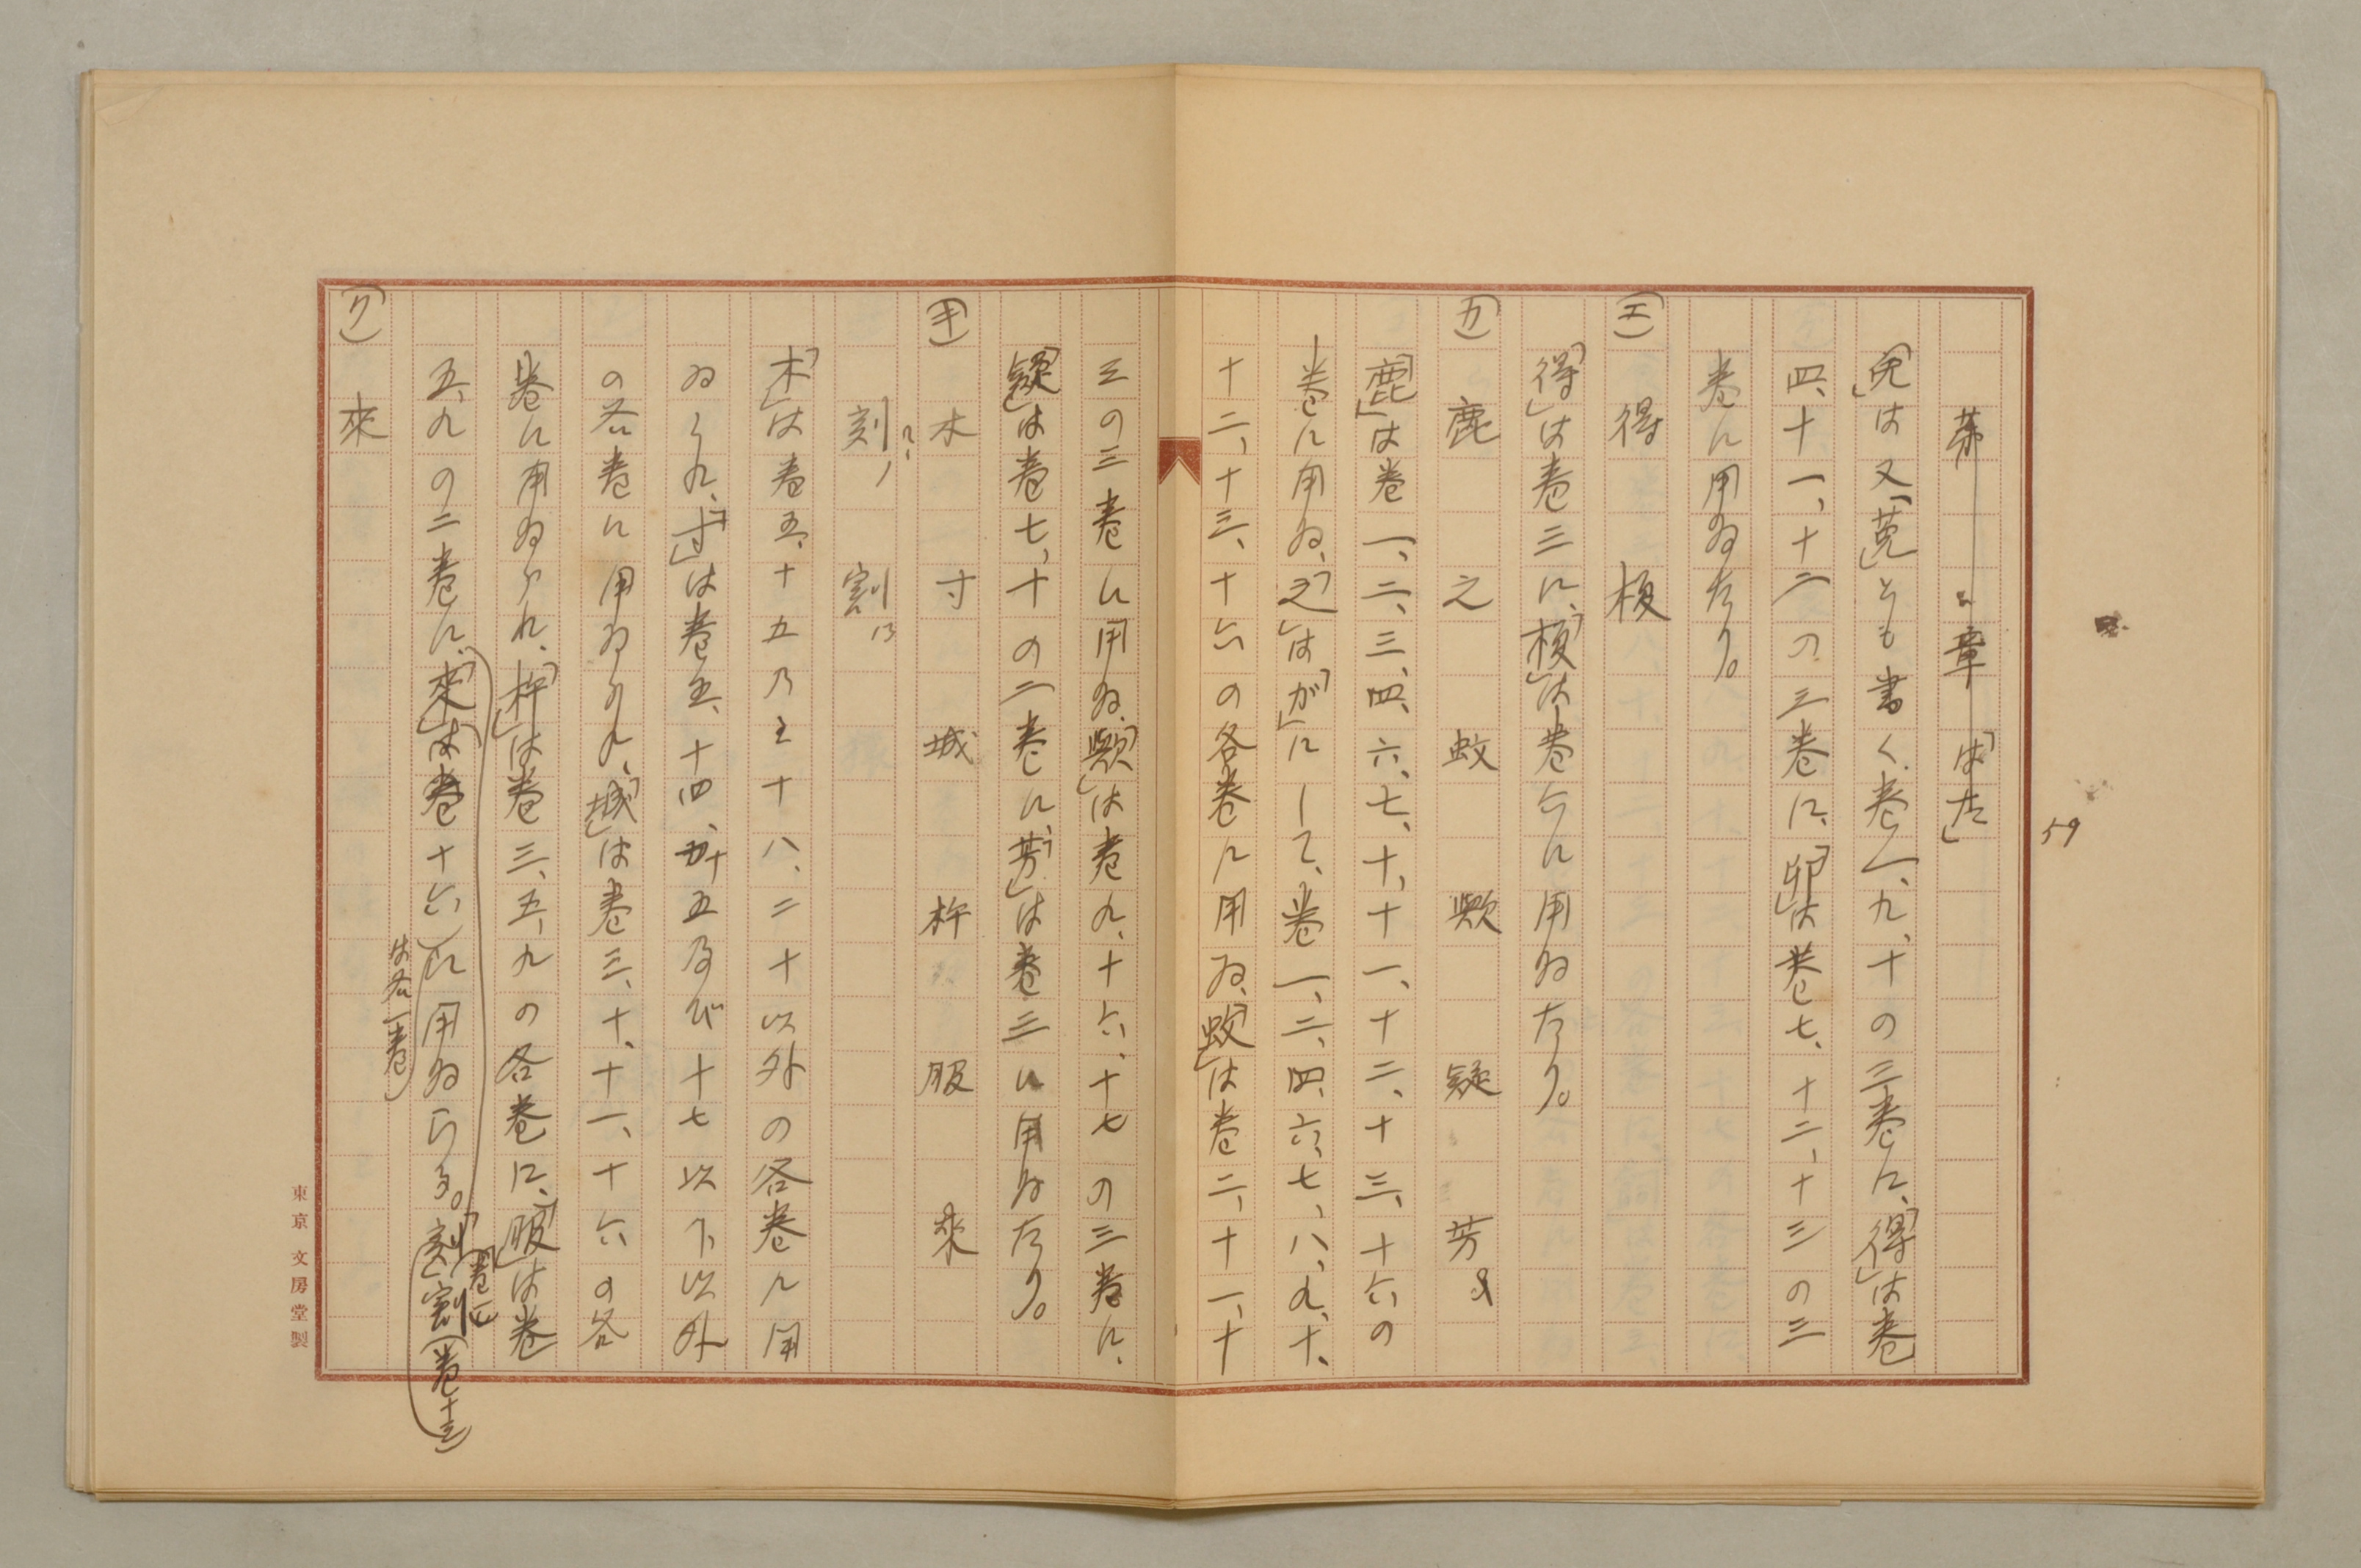 59
第 章「はた」
「免」は又「莬」とも書く巻一、九、十の三巻に、「得」は巻
四、十一、十二の三巻に、「卯」は巻七、十二、十三の三
巻に用ゐたり。
(エ) 得 榎
「得」は巻三に、「榎」は巻六に用ゐたり。
(カ) 鹿 之 蚊 歟 疑 芳
「鹿」は巻一、二、三、四、六、七、十、十一、十二、十三、十六の
巻に用ゐ、「之」は「が」にして、巻一、二、四、六、七、八、九、十、
十二、十三、十六の各巻に用ゐ、「蚊」は巻二、十一、十
三の三巻に用ゐ、「歟」は巻九、十六、十七の三巻に、
「疑」は巻七、十の二巻に、「芳」は巻三に用ゐたり。
(キ) 木 寸 城 杵 服 來
刻 割
「木」は巻五、十五乃至十八、二十以外の各巻に用
ゐられ、「寸」は巻五、十四、十五及び十七以下以外
の各巻に用ゐられ、「城」は巻三、十、十一、十六の各
巻に用ゐられ、「杵」は巻三、五、九の各巻に、「服」は巻
五、九の二巻に、「來」は巻十六に用ゐらる。「刻」「割」(巻十三)
は各一巻
(ク) 來
東京 文房堂製